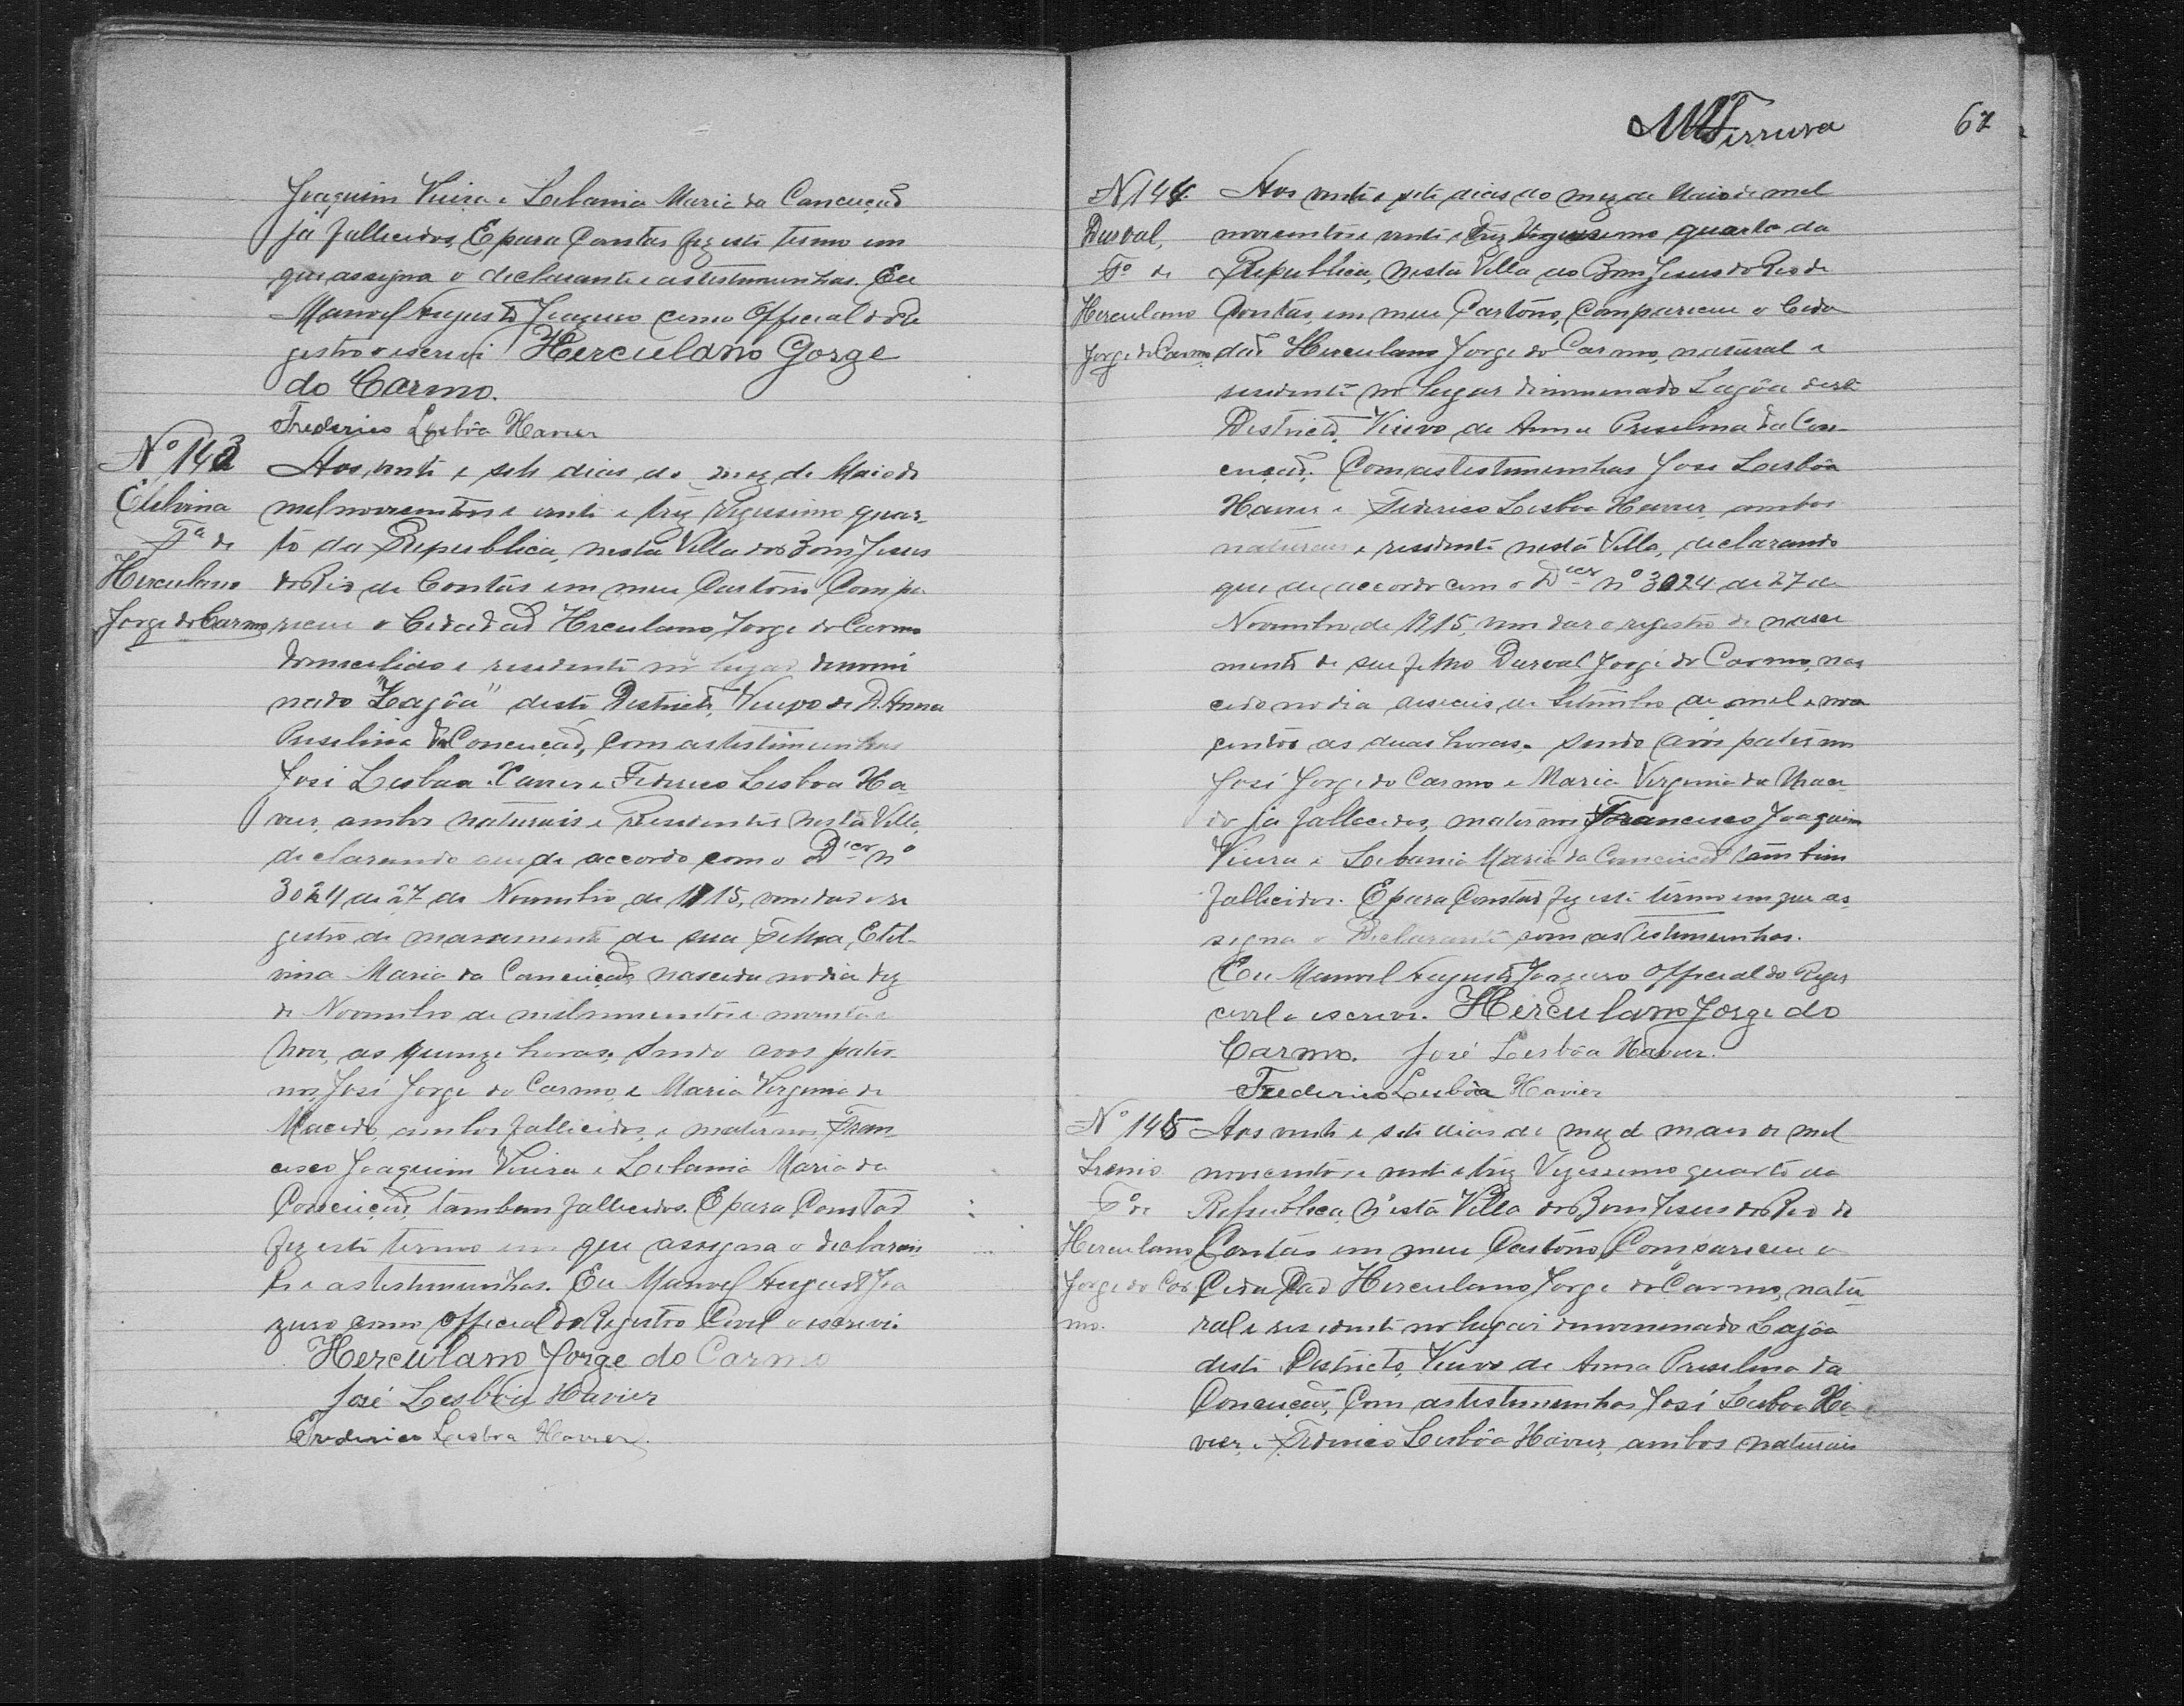 Joaquim Vieira e Libania Maria da Conceição
já fallecidos, E para Constar fez este termo em
que assigna o declarante e as testemunhas. Eu
Manoel Augusto como Official do Re
gistro o escrevi Herculano Gorge
do Carmo.
Frederico Lisbôa Xavier
Nº 143
Etelvina
Fª de
Herculano
Jorge do Carmo
Aos vinte e sete dias do mez de Maio de
mil novecentos e vinte e trez vigessimo quar-
to da Republica, nesta Villa do Bom Jesus
do Rio de Contas em meu Cartorio Compa
receu o Cidadão Herculano Jorge do Carmo
domiciliado e residente no lugar denomi
nado "Lagôa" deste Districto, Viuvo de D. Anna
da Conceição, com as testimunhas
José Lisboa Xavier e Federico Lisboa Xa-
vier, ambos naturais e Residentes nesta Villa,
declarando que de accordo com o Dcer nº
3024 de 27 de Novembro de 1915, vem dar o re
gistro de nascimento de sua Filha, Etel-
vina Maria da Conceição, nascida no dia dez
de Novembro de mil e noventa e
nove, as quinze horas, sendo avos pater-
nos, José Jorge do Carmo, e Maria Virginia de
Macedo, ambos fallicidos, e maternos, Fran-
cisco Joaquim Vieira e Libania Maria da
Conceição, tambem fallecidos. E para Constar
fez este termo em que assigna o declaran-
te e as testimunhas. Eu Manoel Augusto
como Official do Registro Civil o escrevi.
Herculano Jorge do Carmo
José Lisbôa Xavier
Frederico Lisboa Xavier
67
N 144.
Durval,
Fº de
Herculano
Jorge do Carmo
Aos vinte e sete dias do mez de Maio de mil
novecentos e vinte e trez Vigessimo quarto da
Republica, nesta Villa do Bom Jesus do Rio de
Contas, em meu Cartorio, Compareceu o Cida
dão Herculano Jorge do Carmo, natural e
residente no lugar dinominado Lagôa deste
Districto, Viuvo de Anna da Con-
ceição. Com as testimunhas José Lisbôa
Xavier e Federico Lisboa Xavier, ambos
naturais e residente nesta Villa, declarando
que de accordo com o Dcer nº 3024 de 27 de
Novembro de 1915, vem dar o registro de nasci
mento de seu filho Durval Jorge do Carmo, nas
cido no dia deseseis de Setembro de mil e nove
centos as duas horas. Sendo avós paternos
José Jorge do Carmo e Maria Virginia de Mace
do já fallecidos, maternos Francisco Joaquim
Vieira e Libania Maria da Conceição tambem
fallicidos. E para Constar fez este termo em que as
signa o Declarante com as testimunhas.
Eu Manoel Augusto Official do Regis
civil o escrevi. Herculano Jorge do
Carmo. José Lisbôa Xavier.
Frederico Lisbôa Xavier
Nº 145
Irenio
Fº de
Herculano
Jorge do Car
mo.
Aos vinte e sete dias do mez de maio de mil
novecentos e vinte e trez Vigessimo quarto da
Republica, n'esta Villa do Bom Jesus do Rio de
Contas em meu Cartorio, Compareceu o
Cidadão Herculano Jorge do Carmo, natu-
ral e residente no lugar denominado Lagôa
deste Districto, Viuvo de Anna da
Conceição, Com as testimunhas José Lisboa Xa
vier, e Federico Lisbôa Xavier, ambos naturais